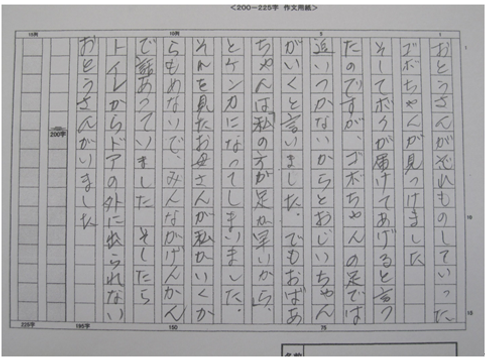 <200-225字 作文用紙>
おとうさんがそれものしていった
ゴボちゃんが見つけました
そしてボクが届けてあげると言っ
たのですが、ゴボちゃんの足では
追いつかないからとおじいちゃん
がいくと言いました。でもおばあ
ちゃんは私の方が足が早いから、
とケンカになってしまいました。
それを見たお母さんが私がいくか
らもめないで、みんながげんかん
で話あっていました そしたら
トイレからドアの外に出られない
おとうさんがいました
200字
225字
195字
150
75
15